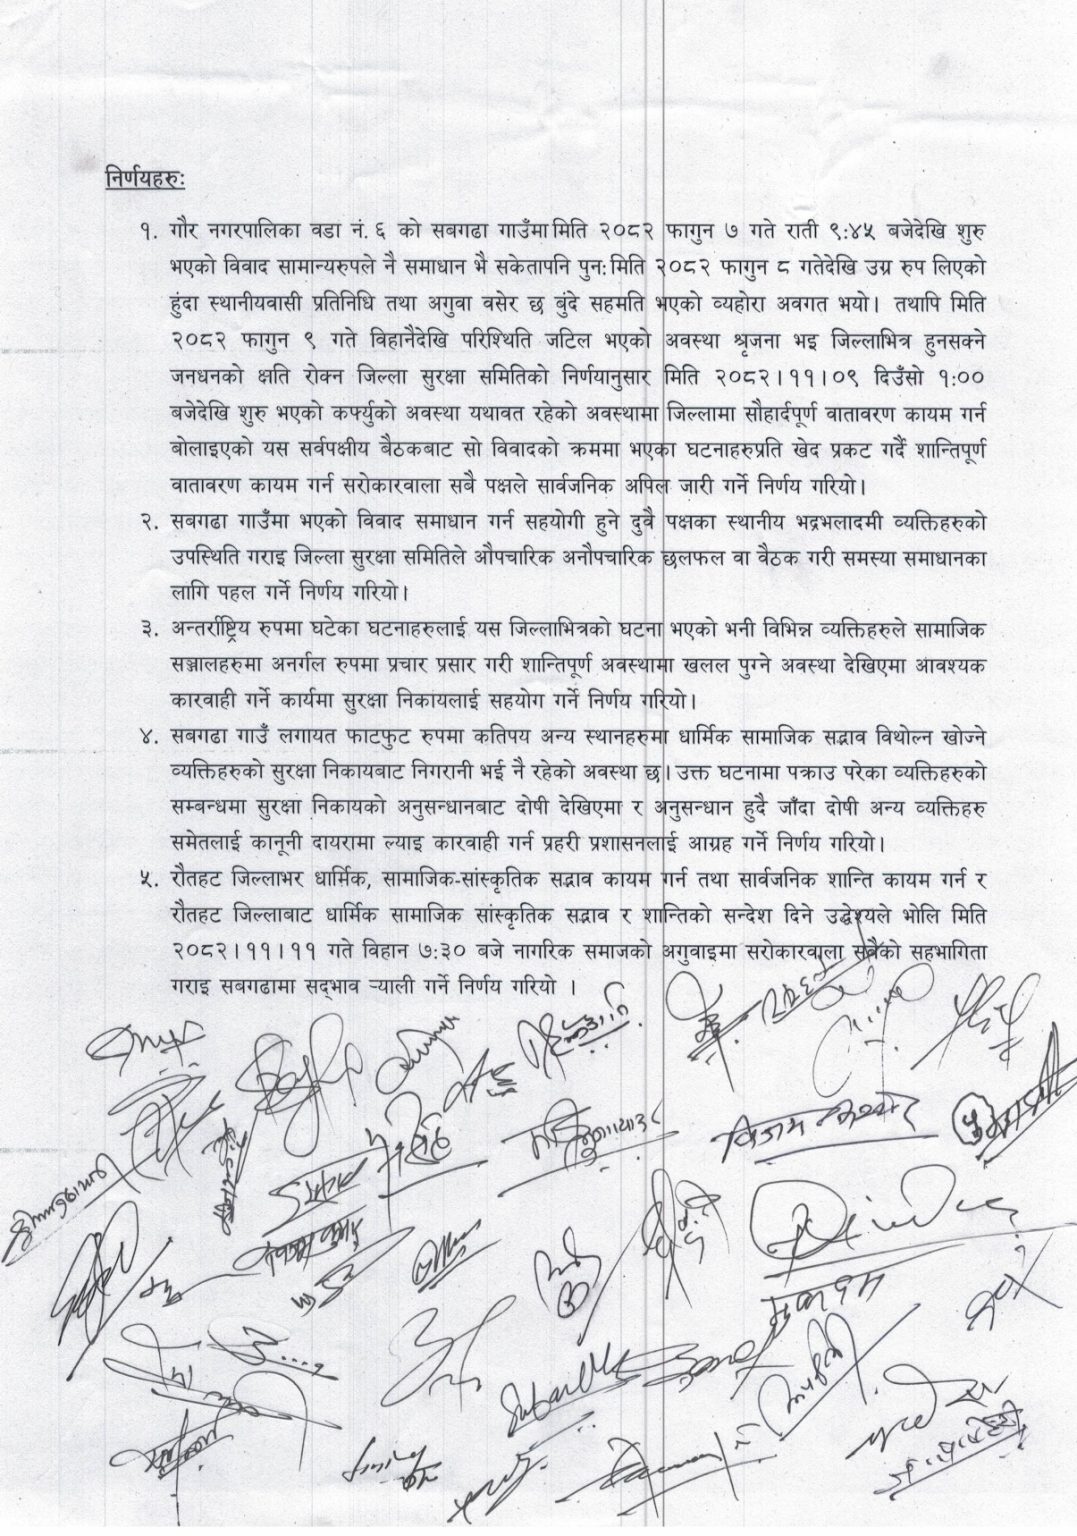 निर्णयहरुः
१. गौर नगरपालिका वडा नं. ६ को सबगढा गाउँमा मिति २०८२ फागुन ७ गते राती ९:४५ बजेदेखि शुरु
भएको विवाद सामान्यरुपले नै समाधान भै सकेतापनि पुन: मिति २०८२ फागुन ८ गतेदेखि उग्र रुप लिएको
हुंदा स्थानीयवासी प्रतिनिधि तथा अगुवा वसेर छ बुंदे सहमति भएको व्यहोरा अवगत भयो। तथापि मिति
२०८२ फागुन ९ गते विहानैदेखि परिश्थिति जटिल भएको अवस्था श्रृजना भइ जिल्लाभित्र हुनसक्ने
जनधनको क्षति रोक्न जिल्ला सुरक्षा समितिको निर्णयानुसार मिति २०८२।११।०९ दिउँसो १:००
बजेदेखि शुरु भएको कर्फ्युको अवस्था यथावत रहेको अवस्थामा जिल्लामा सौहार्दपूर्ण वातावरण कायम गर्न
बोलाइएको यस सर्वपक्षीय बैठकबाट सो विवादको क्रममा भएका घटनाहरुप्रति खेद प्रकट गर्दै शान्तिपूर्ण
वातावरण कायम गर्न सरोकारवाला सबै पक्षले सार्वजनिक अपिल जारी गर्ने निर्णय गरियो।
२. सबगढा गाउँमा भएको विवाद समाधान गर्न सहयोगी हुने दुवै पक्षका स्थानीय भद्रभलादमी व्यक्तिहरुको
उपस्थिति गराइ जिल्ला सुरक्षा समितिले औपचारिक अनौपचारिक छलफल वा वैठक गरी समस्या समाधानका
लागि पहल गर्ने निर्णय गरियो।
३. अन्तर्राष्ट्रिय रुपमा घटेका घटनाहरुलाई यस जिल्लाभित्रको घटना भएको भनी विभिन्न व्यक्तिहरुले सामाजिक
सञ्जालहरुमा अनर्गल रुपमा प्रचार प्रसार गरी शान्तिपूर्ण अवस्थामा खलल पुग्ने अवस्था देखिएमा आवश्यक
कारवाही गर्ने कार्यमा सुरक्षा निकायलाई सहयोग गर्ने निर्णय गरियो।
४. सबगढा गाउँ लगायत फाटफुट रुपमा कतिपय अन्य स्थानहरुमा धार्मिक सामाजिक सद्भाव विथोल्न खोज्ने
व्यक्तिहरुको सुरक्षा निकायबाट निगरानी भई नै रहेको अवस्था छ। उक्त घटनामा पक्राउ परेका व्यक्तिहरुको
सम्बन्धमा सुरक्षा निकायको अनुसन्धानबाट दोषी देखिएमा र अनुसन्धान हुदै जाँदा दोषी अन्य व्यक्तिहरु
समेतलाई कानूनी दायरामा ल्याइ कारवाही गर्न प्रहरी प्रशासनलाई आग्रह गर्ने निर्णय गरियो।
५. रौतहट जिल्लाभर धार्मिक, सामाजिक-सांस्कृतिक सद्भाव कायम गर्न तथा सार्वजनिक शान्ति कायम गर्न र
रौतहट जिल्लाबाट धार्मिक सामाजिक सांस्कृतिक सद्भाव र शान्तिको सन्देश दिने उद्धेश्यले भोलि मिति
२०८२।११।११ गते विहान ७:३० बजे नागरिक समाजको अगुवाइमा सरोकारवाला सवैको सहभागिता
गराइ सबगढामा सद्‌भाव ऱ्याली गर्ने निर्णय गरियो ।